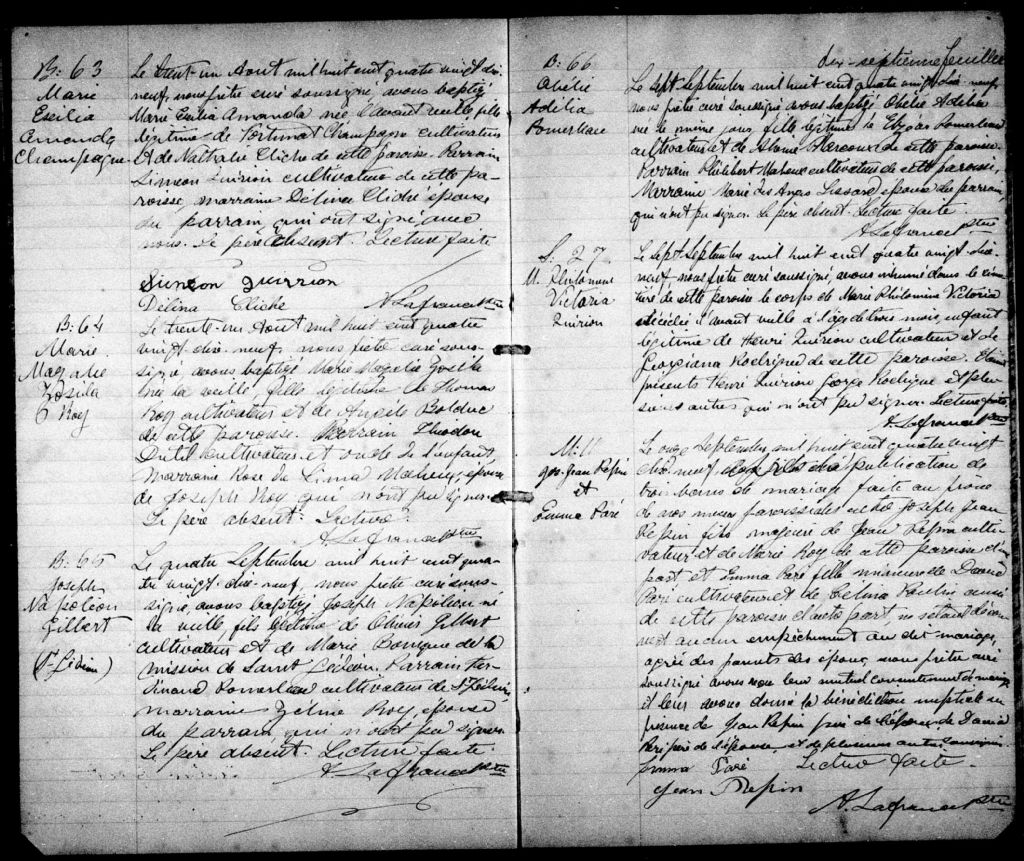 B: 63
Marie
Exilia
Amanda
Champagne
Le trent-un Aout mil huit cent quatre vingt dix
neuf, nous prêtre curé soussigné avons baptizé
Marie Exilia Amanda née l'avant veille, fille
légitime de Fortunat Champagne cultivateur
et de Nathalie Cliche de cette paroisse. Parrain
Simeon Quirion cultivateur de cette pa-
roisse, marraine Délina Cliche épouse
du parrain, qui ont signé avec
nous. Le père absent. Lecture faite
Simeon Quirrion
Délina Cliche A. Lafrance Ptre
B: 64
Marie
Magalie
Zoéila
Roy
Le trente-un Aout mil huit cent quatre
vingt-dix-neuf, nous prêtre curé sous-
signé avons baptizé Marie
née la veille, fille légitime de Thomas
Roy cultivateur et de Angèle Bolduc
de cette paroisse. Parrain Theodore
cultivateur et oncle de l'enfant
marraine Rose de Lima épouse
de Joseph Roy qui n'ont pu signer.
Le père absent. Lecture.
A. Lafrance Ptre
B: 65
Joseph
Napoléon
Gilbert
Le quatre Septembre mil huit cent qua-
tre vingt-dix-neuf, nous prêtre curé sous-
signé, avons baptizé Joseph Napoléon né
la veille, fils légitime de Gilbert
cultivateur et de Marie de la
mission de Saint Gédéon. Parrain Fer-
dinand Pomerleau cultivateur de St Gédéon,
marraine Zéline Roy épouse
du parrain, qui n'ont pu signer
Le père absent. Lecture faite
A. Lafrance Ptre
dix-septième feuillet
B: 66
Obélie
Adélia
Pomerleau
Le sept Septembre mil huit cent quatre vingt dix neuf,
nous prêtre curé soussigné avons baptizé Obélie Adélia
née le même jour, fille légitime de Elzéar Pomerleau
cultivateur et de de cette paroisse.
Parrain Philibert Maheux cultivateur de cette paroisse,
Marraine Marie des Anges Lessard épouse du parrain,
qui n'ont pu signer. Le père absent. Lecture faite.
A. Lafrance Ptre
S: 27
M. Philomene
Victoria
Quirion
Le sept Septembre mil huit cent quatre vingt-dix-
neuf, nous prêtre curé soussigné, avons inhumé dans le cime-
tière de cette paroisse le corps de Marie Philomine Victoria
décédée l'avant veille à l'âge de trois mois, enfant
légitime de Henri Quirion cultivateur et de
Georgiana Rodrigue de cette paroisse. Etaient
présents Henri Quirion George Rodrigue et plu-
sieurs autres qui n'ont pu signer. Lecture faite
A. Lafrance Ptre
M: 11
Jos. Jean Pépin
et
Emma Paré
Le onze Septembre mil huit cent quatre vingt
dix neuf, publication de
trois bans de mariage faite au prone
de nos messes paroissiales entre Joseph Jean
Pépin fils majeur de Jean Pépin culti-
vateur et de Marie Roy de cette paroisse d'une
part et Emma Paré fille mineure de Damas
Paré cultivateur et de Celina Poulin aussi
de cette paroisse d'autre part, ne s'étant décou-
vert aucun empêchement au dit mariage,
après des parents des époux, nous prêtre curé
soussigné avons reçu leur mutuel consentement de mariage
et leur avons donné la bénédiction nuptiale en
présence de Jean Pépin père de l'époux de Damas
Paré père de l'épouse, et de plusieurs autres soussignés
Emma Paré Lecture faite.
Jean Pepin
A. Lafrance Ptre